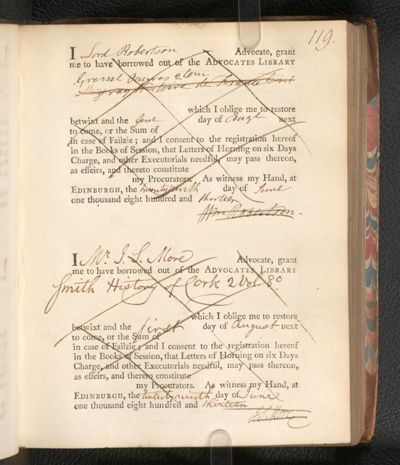 119.
I Lord Robertson Advocate, grant
me to have borrowed out of the ADVOCATES LIBRARY
2 tom
which I oblige me to restore
betwixt and the first day of Augt next
to come, or the Sum of
in case of Failzie; and I consent to the registration hereof
in the Books of Session, that Letters of Horning on six Days
Charge, and other Executorials needful, may pass thereon,
as effeirs, and thereto constitute
my Procurators. As witness my Hand, at
EDINBURGH, the twenty ninth day of June
one thousand eight hundred and thirteen
Wm Robertson.
I Mr. J. S. More Advocate, grant
me to have borrowed out of the ADVOCATES LIBRARY
Smith History of Cork 2 Vol. 8o
which I oblige me to restore
betwixt and the first day of August next
to come, or the Sum of
in case of Failzie; and I consent to the registration hereof
in the Books of Session, that Letters of Horning on six Days
Charge, and other Executorials needful, may pass thereon,
as effeirs, and thereto constitute
my Procurators. As witness my Hand, at
EDINBURGH, the twenty ninth day of June
one thousand eight hundred and thirteen